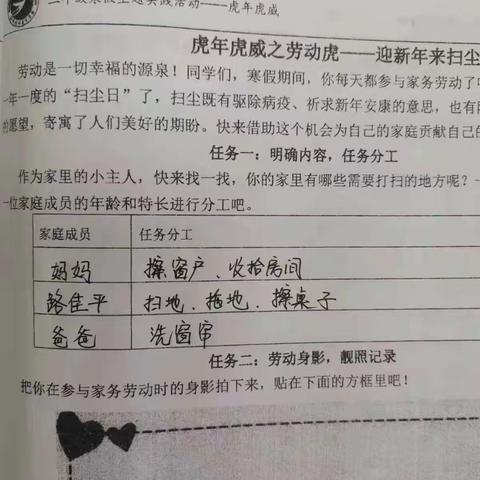 年级寒假主题实践活动——虎年虎威
虎年虎威之劳动虎——迎新年来扫尘
劳动是一切幸福的源泉！同学们，寒假期间，你每天都参与家务劳动了
一年一度的“扫尘日”了，扫尘既有驱除病疫、祈求新年安康的意思，也有
的愿望，寄寓了人们美好的期盼。快来借助这个机会为自己的家庭贡献自己的
任务一：明确内容，任务分工
作为家里的小主人，快来找一找，你的家里有哪些需要打扫的地方呢？
位家庭成员的年龄和特长进行分工吧。
家庭成员 任务分工
妈妈 擦窗户、收拾房间
路佳平 扫地、拖地、擦桌子
爸爸 洗窗帘
任务二：劳动身影，靓照记录
把你在参与家务劳动时的身影拍下来，贴在下面的方框里吧！